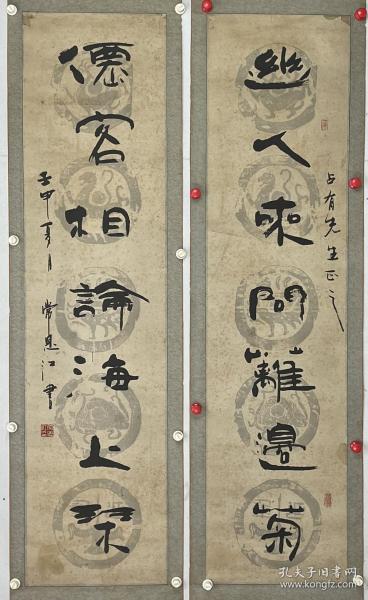 幽人來問籬邊菊
占有先生正之
僊客相論海上琹
壬申夏月
常恩江書
孔夫子旧书网